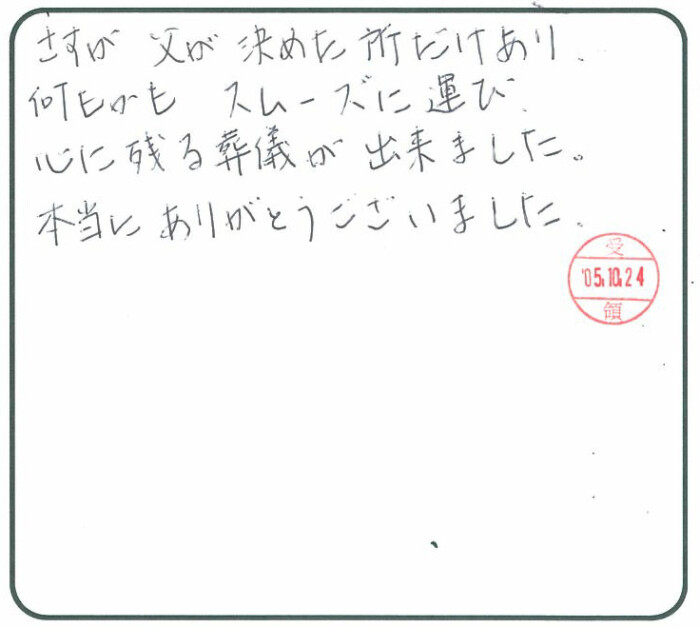 さすが 父が 決めた 所だけあり、
何もかも スムーズに 運び、
心に 残る 葬儀が 出来ました。
本当に ありがとうございました。
受
'05.10.24
領